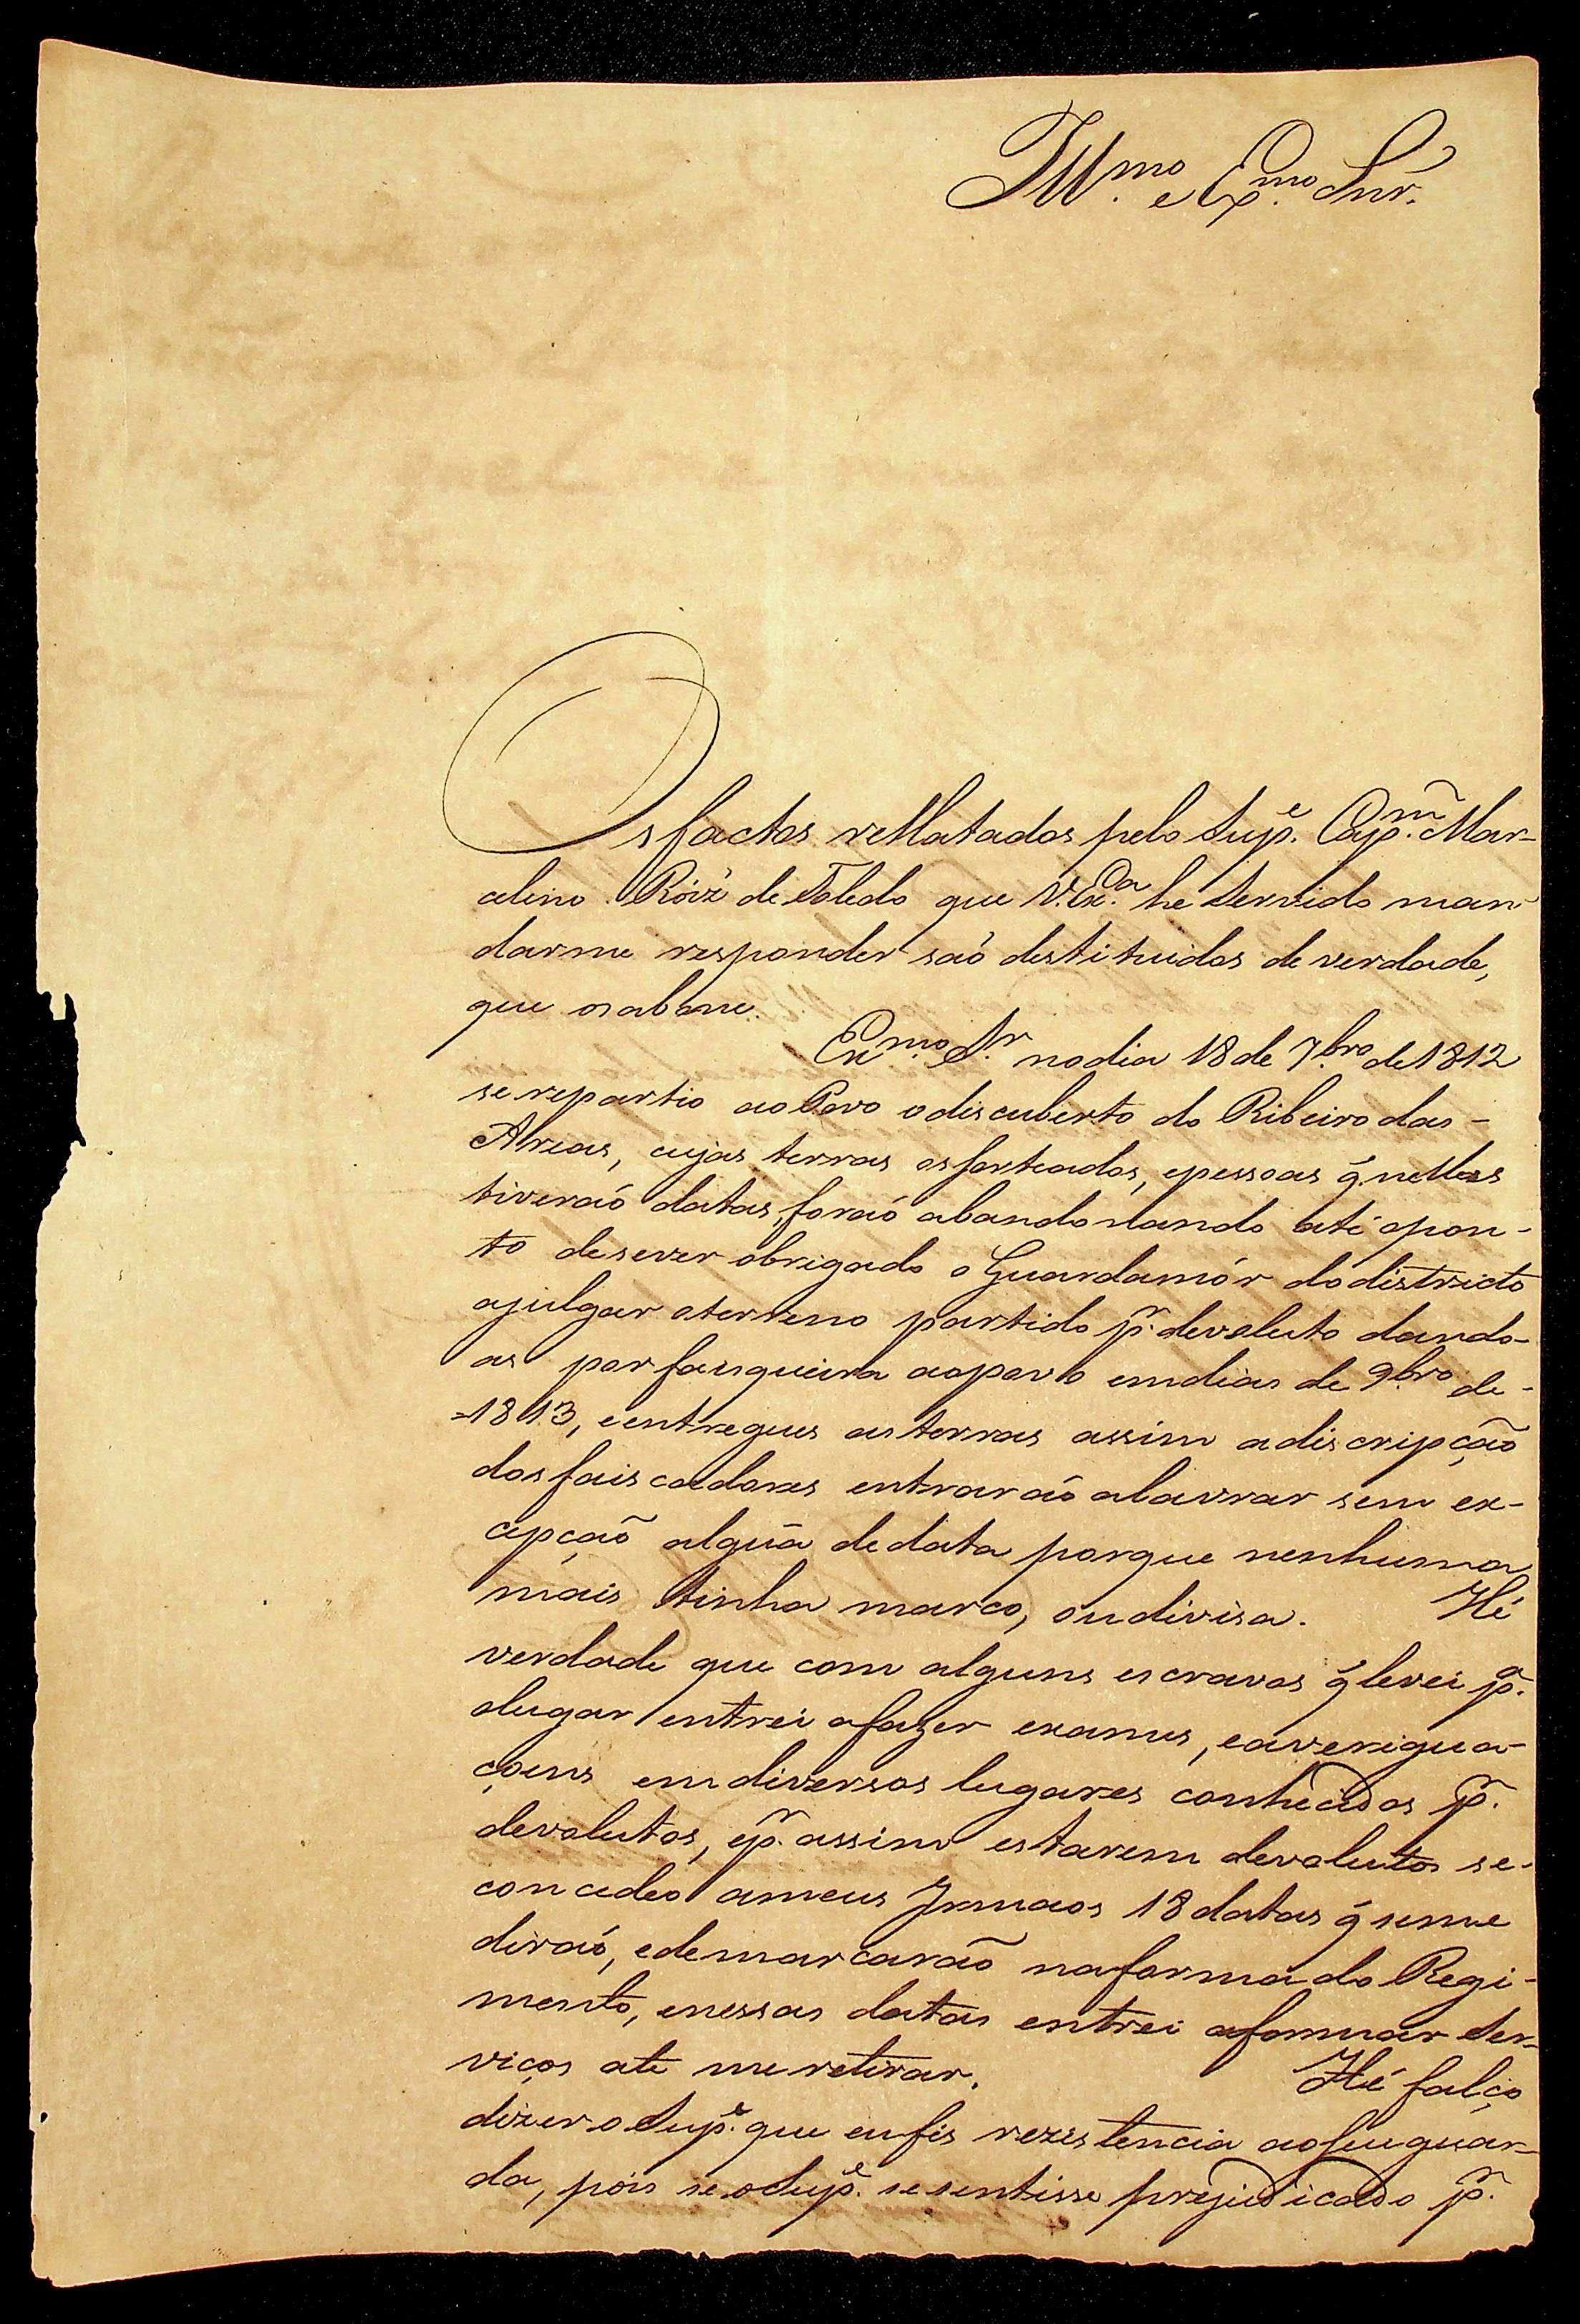 Illmo. e Exmo. Snr.
Os factos rellatados pelo Supe. Capm. Mar-
celino Roiz de Toledo que V. Exa. he servido man-
darme responder saó destituidos de verdade,
que os abone.
Exmo. Sr. no dia 18 de 7bro. de 1812
se repartio ao Povo o discuberto do Ribeiro das-
Areas, cujas terras os sorteados, e pessoas q̃ nellas
tiveraó datas, foraó abandonando até o pon-
to de se ver obrigado o Guardamór do districto
a julgar o terreno partido pr. devoluto dando-
as por faisqueira ao povo em dias de 9bro. de-
=1813, e entregues as terras assim a discripçaõ
dos faiscadores entraraó a lavrar sem ex-
cepçaõ algũa de data porque nenhuma
mais tinha marco, ou divisa. Hé
verdade que com alguns escravos q̃ levei pa.
o lugar entrei a fazer exames, e averigua-
çoens em diversos lugares conhecidos pr.
devolutos, e pr. assim estarem devolutos se-
concedeo a meus Irmaos 18 datas q̃ se me
diraó, e demarcaraõ na forma do Regi-
mento, e nessas datas entrei a formar Ser-
viços ate me retirar. Hé falço
dizer o Supe. que eu fis rezistencia ao Seu guar-
da, pois se o Supe. se sentisse prejudicado pr.